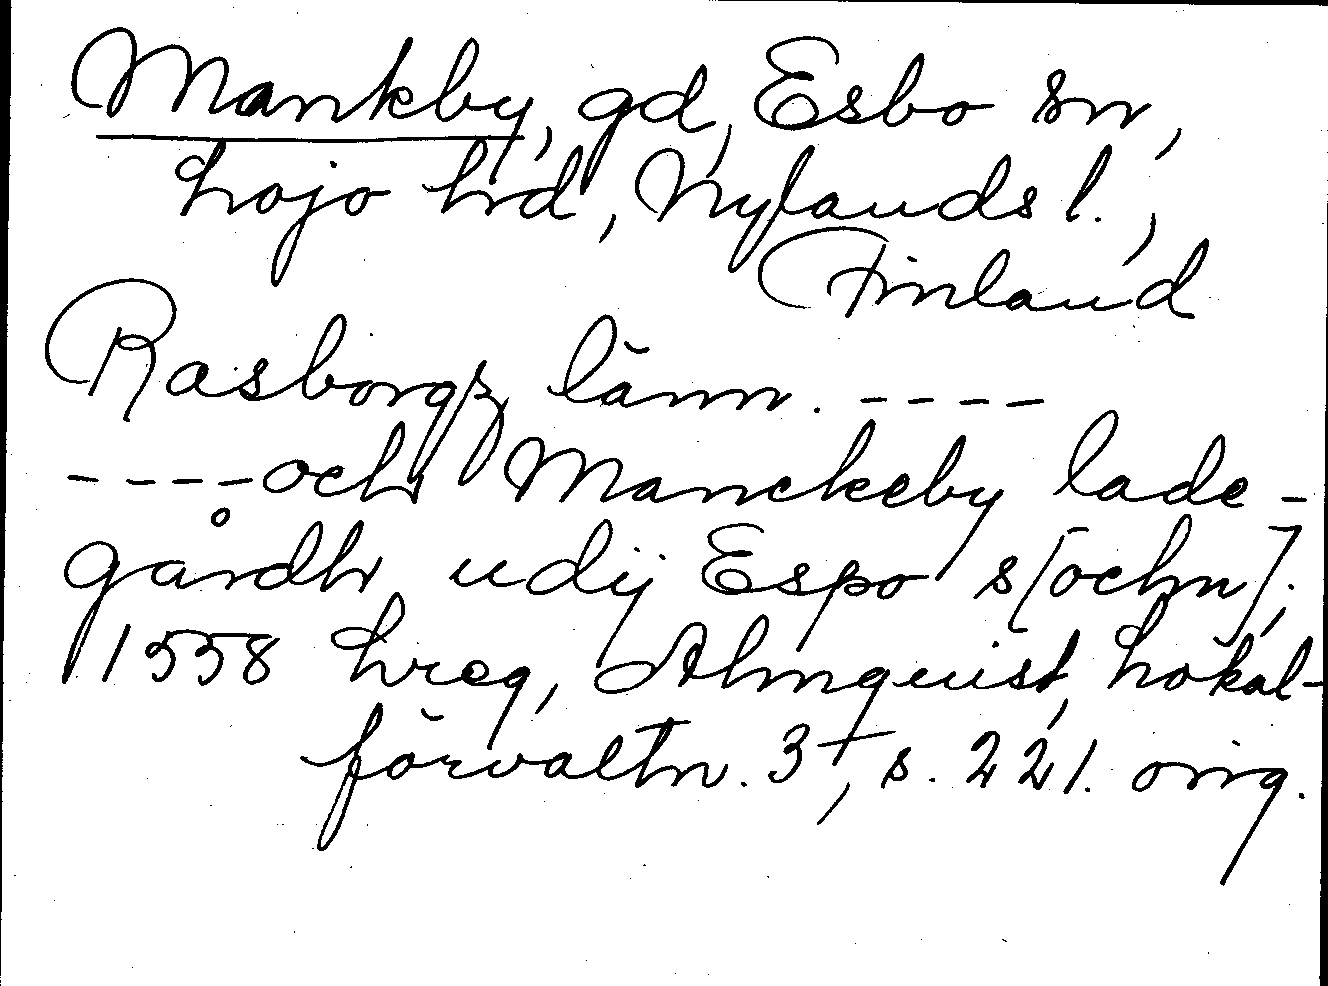 Mankby, gd, Esbo sn,
Lojo hrd, Nylands l.,
Finland
Rasborgz länn. ----
----och Manckeby lade-
gårdh udij Espo s[ochn].
1558 hreg, Almquist, Lokal-
förvaltn. 3, s. 221. orig.